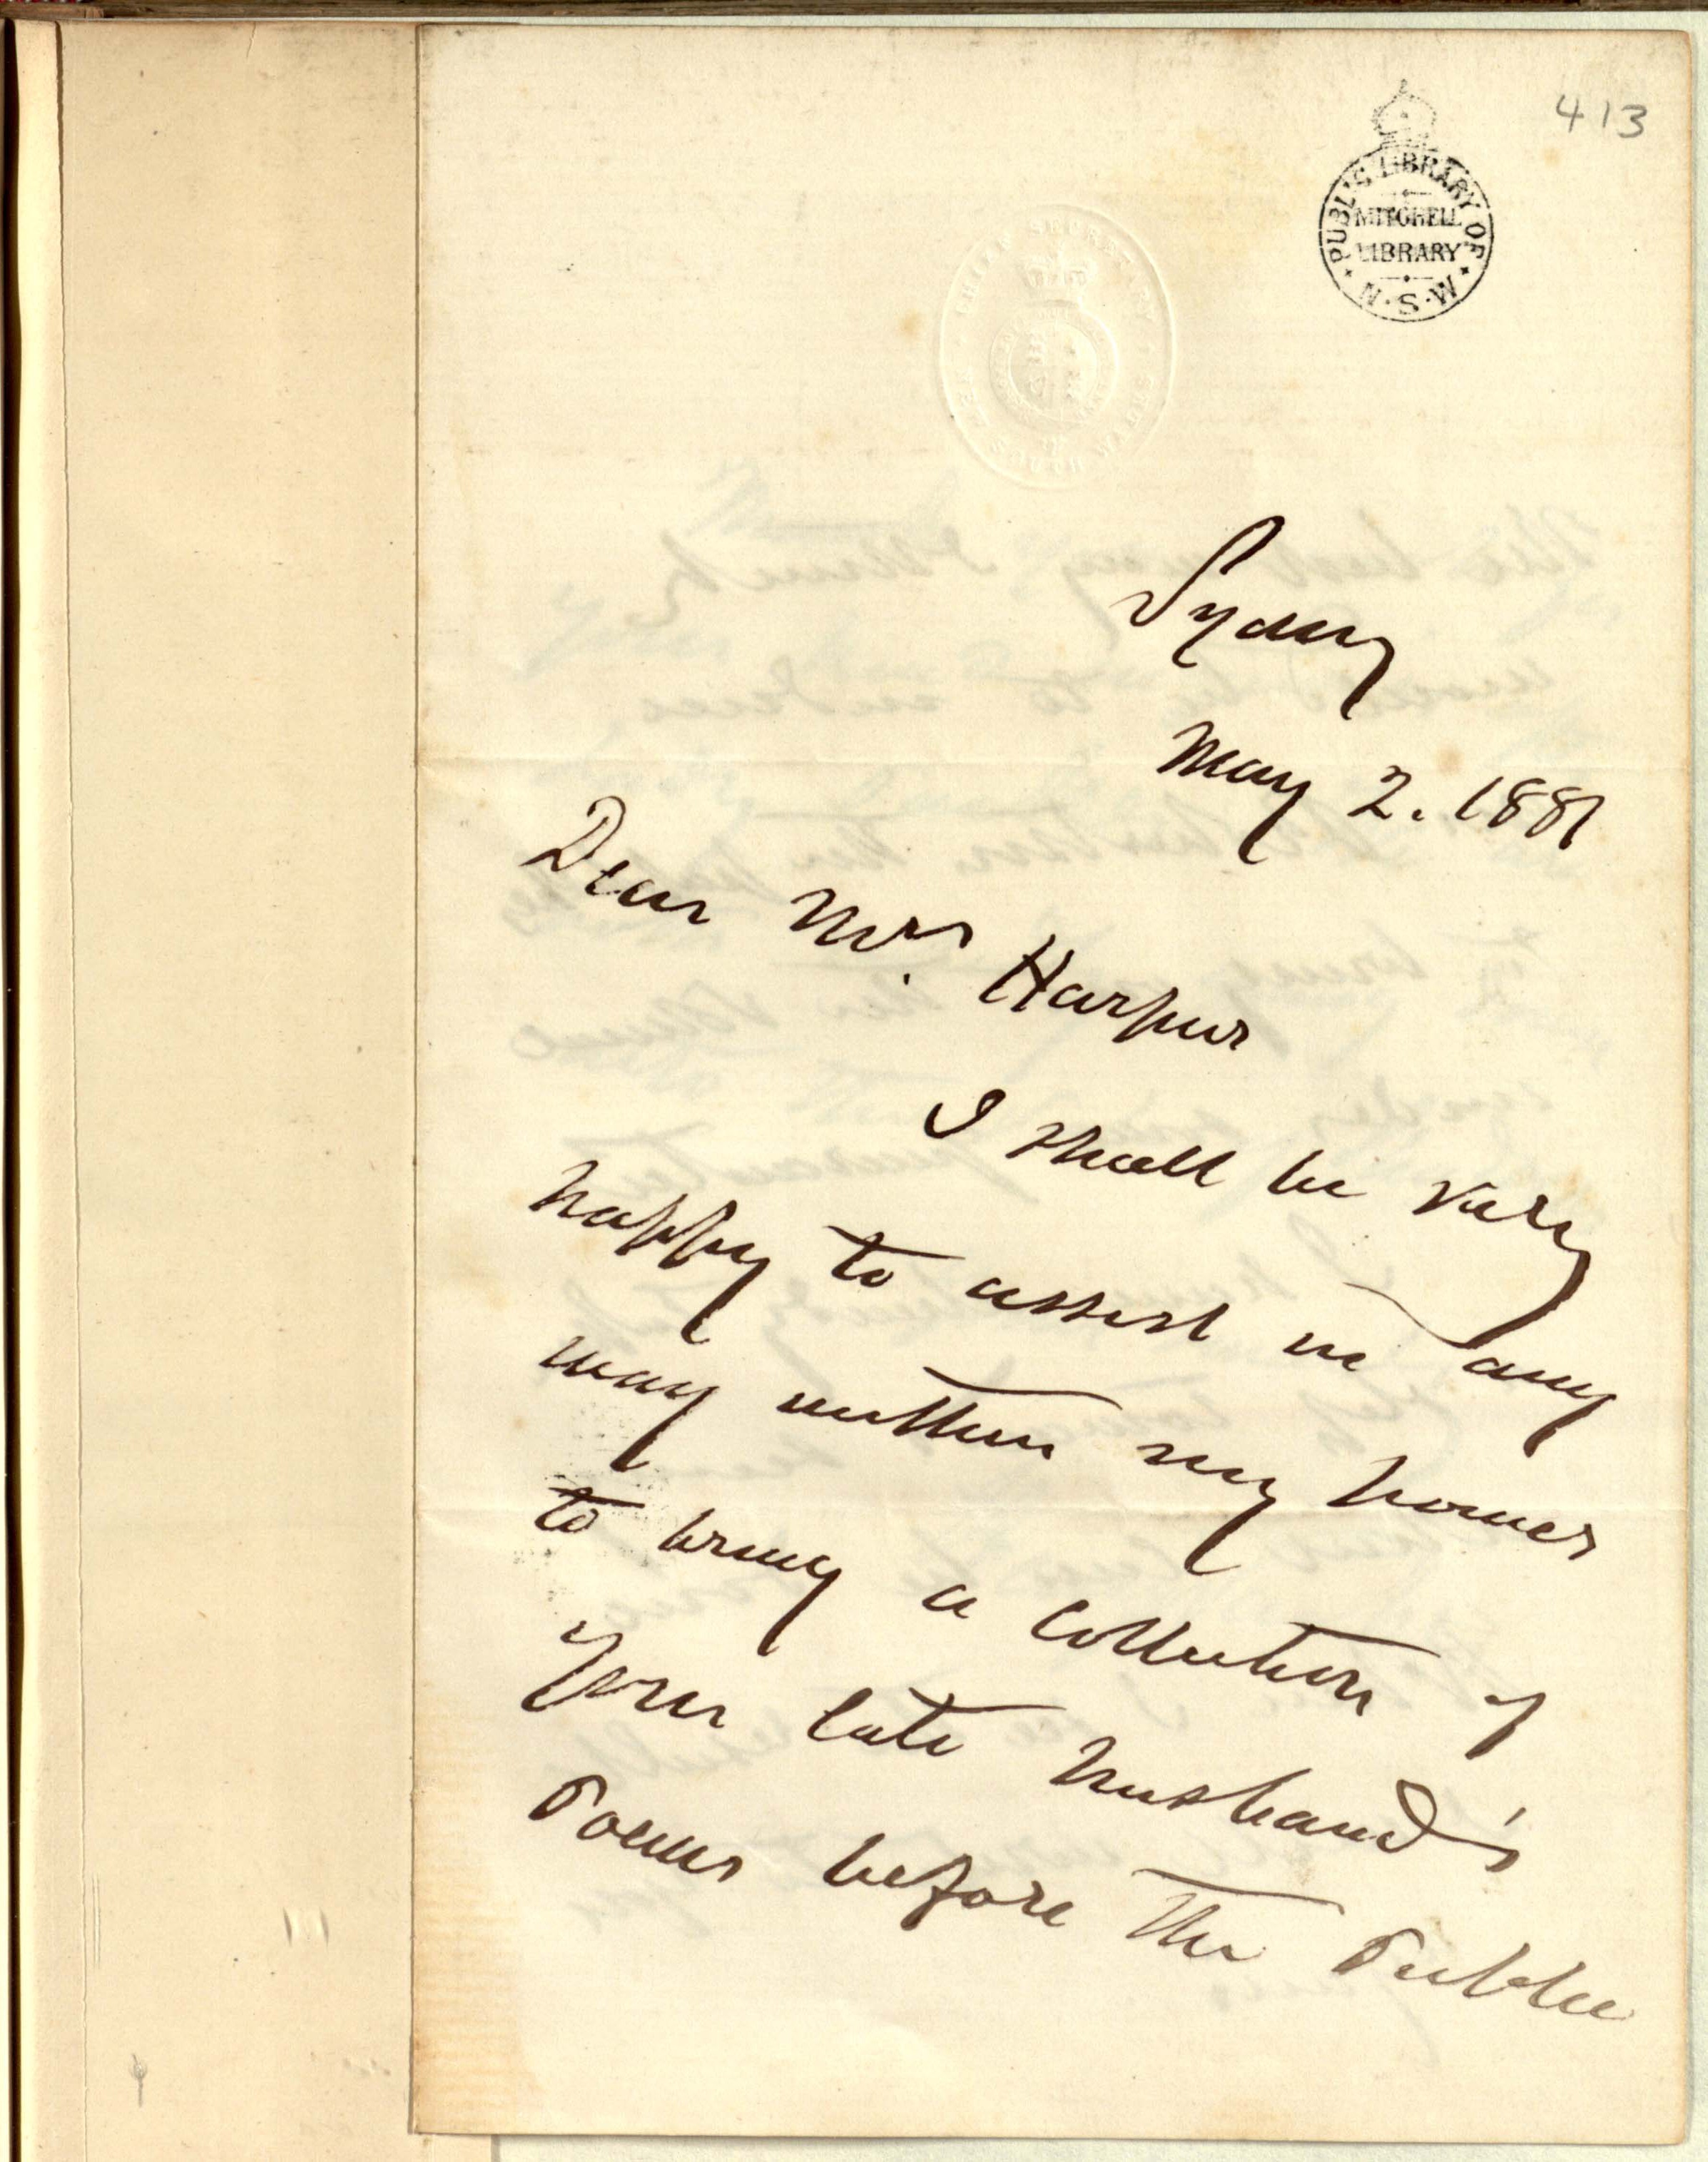 413
PUBLIC LIBRARY OF
MITCHELL
LIBRARY
N.S.W
Sydney
May 2. 1881
Dear Mrs. Harpur
I shall be very
happy to assist in any
way within my power
to bring a collection of
your late husband's
Poems before the Public